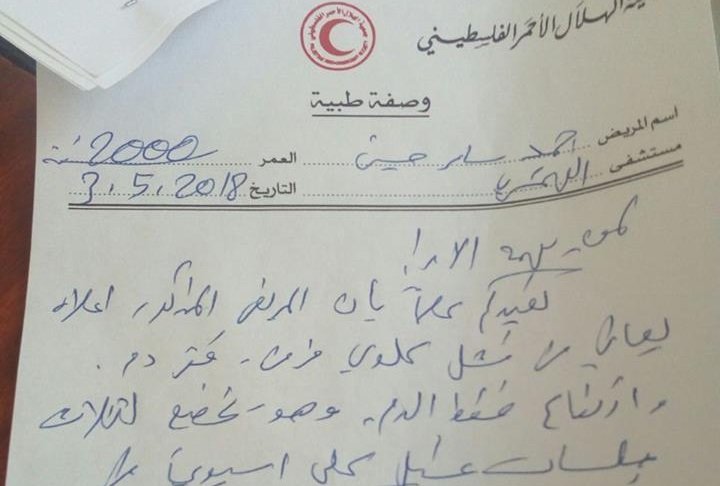 الهلال الأحمر الفلسطيني
وصفة طبية
اسم المريض احمد سامر حسين العمر 2000 سنة
مستشفى التاريخ 3.5.2018
لمن يهمه الامر!
نفيدكم علماً بان المريض المذكور اعلاه
يعاني من فشل كلوي مزمن، فقر دم.
وارتفاع ضغط الدم. وهو يخضع لثلاث
جلسات غسيل كلى اسبوعيا